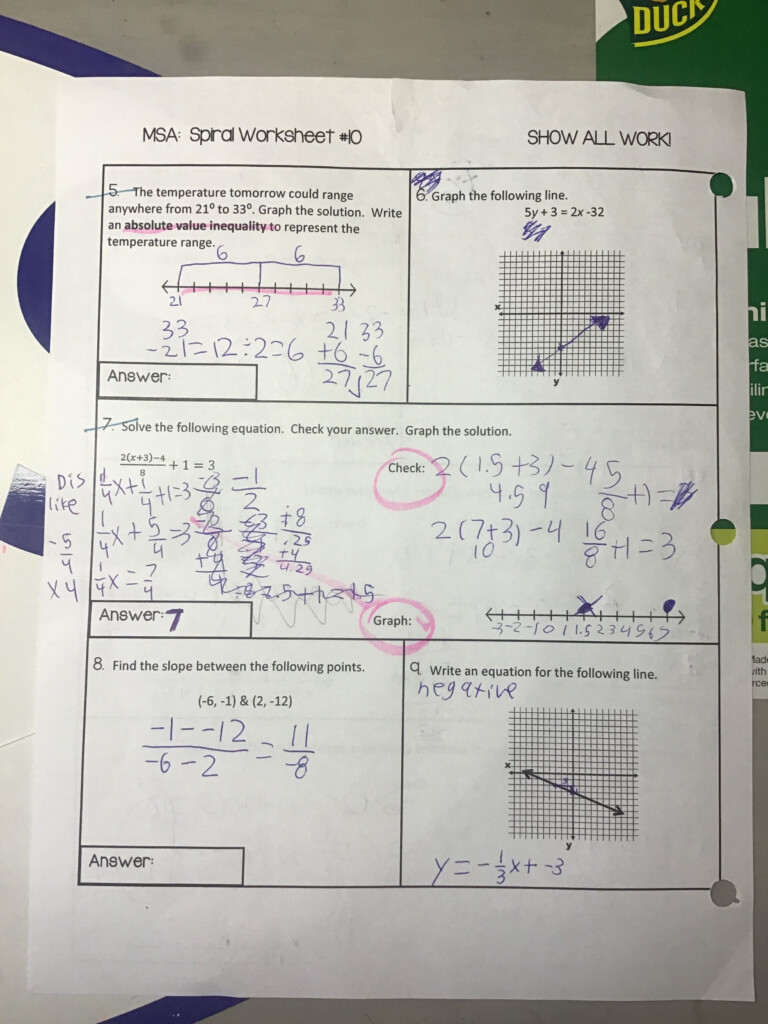 DUCK
MSA: Spiral Worksheet #10
SHOW ALL WORK!
5. The temperature tomorrow could range
anywhere from 21⁰ to 33⁰. Graph the solution. Write
an absolute value inequality to represent the
temperature range.
6 6
21 27 33
33
-21=12÷2=6
21 33
+6 -6
27, 27
Answer:
6. Graph the following line.
5y + 3 = 2x -32
x
y
7. Solve the following equation. Check your answer. Graph the solution.
2(x+3)-4
8
+ 1 = 3
Dis
like
-5
4
x4
1/4x+1/4+1=3
1/4x+5/4=3
1/4x=7/4
Check:
2(1.5+3)-4
4.5 9
5/8+1=
2(7+3)-4
10
16/8+1=3
Answer: 7
Graph:
-3-2-1 0 1 1.5 2 3 4 5 6 7
8. Find the slope between the following points.
(-6, -1) & (2, -12)
-1--12
-6-2
=
11
-8
Answer:
9. Write an equation for the following line.
negative
x
y
y=-1/3x+-3